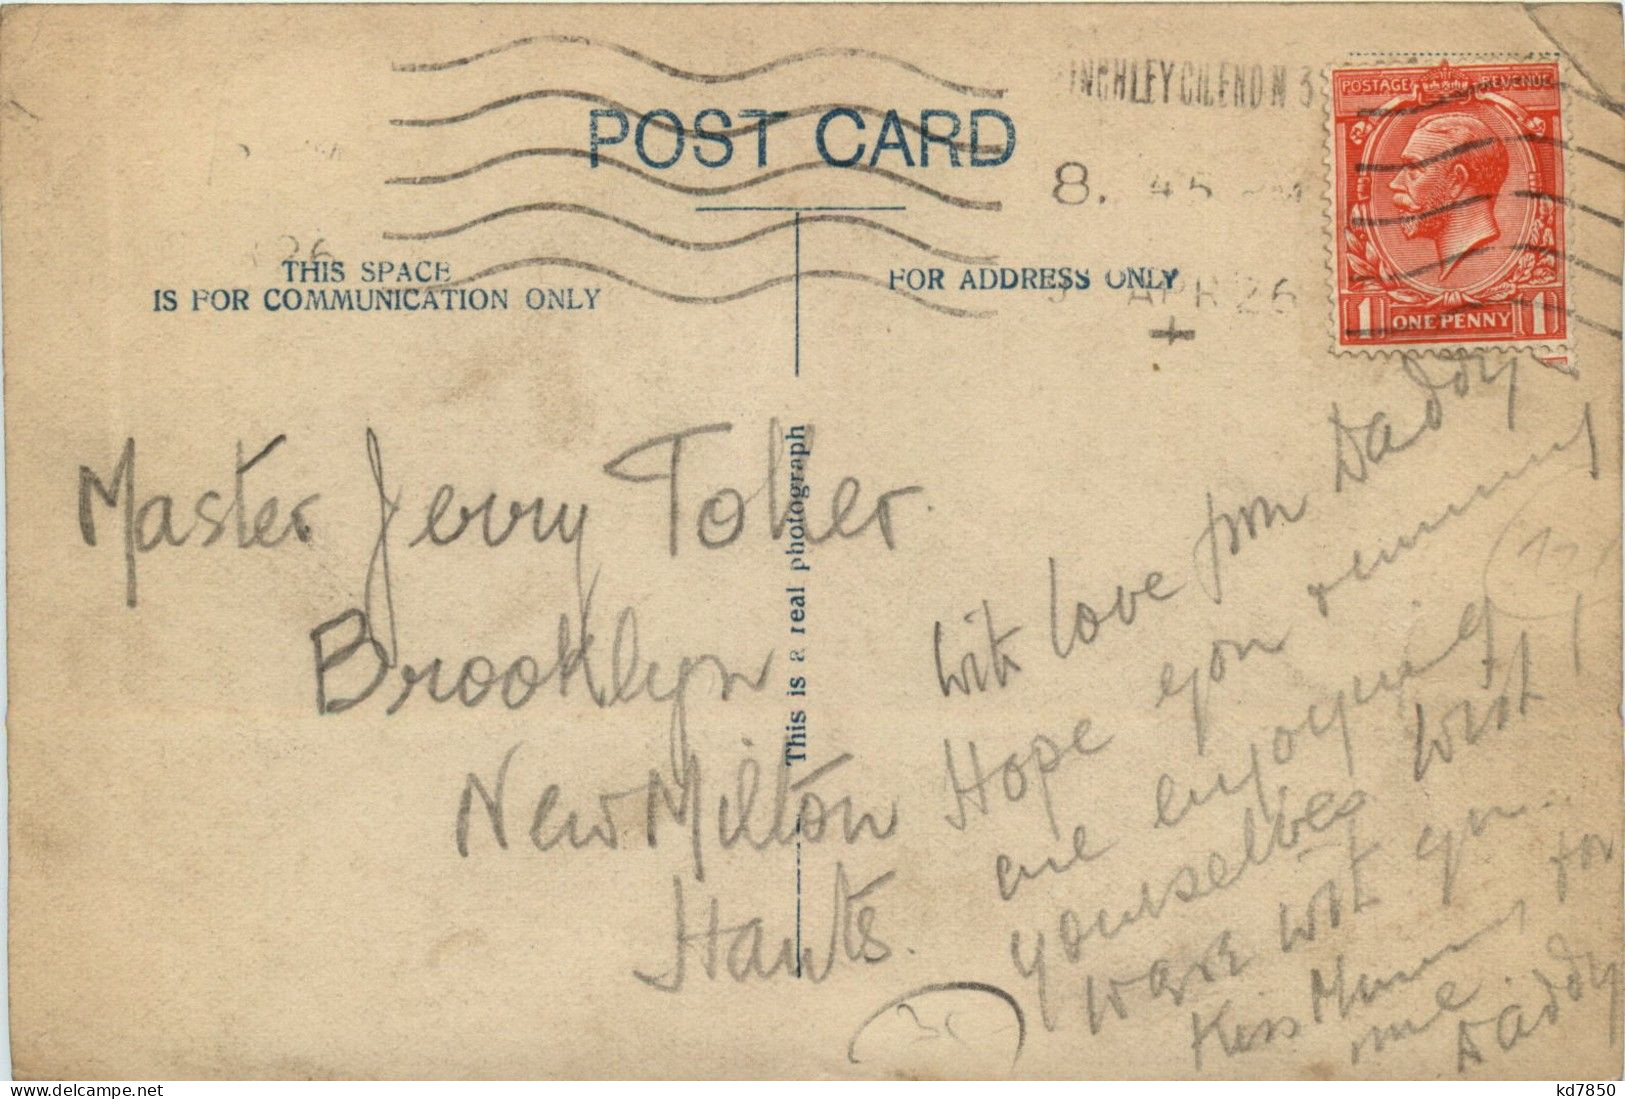 POST CARD
THIS SPACE
IS FOR COMMUNICATION ONLY
FOR ADDRESS ONLY
INCHLEY CH.END N 3
8. 45 PM
APR 26
POSTAGE REVENUE
1 ONE PENNY 1
This is a real photograph
Master Jerry Toller.
Brooklyn
New Milton
Hants.
With love from Daddy
Hope you & mummy
are enjoying
yourselves Wish I
were with you.
Kiss Mummy for
me. Daddy
delcampe.net
kd7850